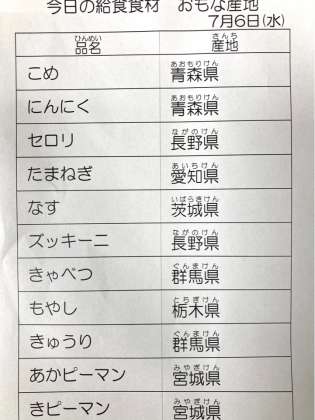 今日の給食食材　おもな産地
7月6日(水)
ひんめい　さんち
品名　産地
あおもりけん
こめ　青森県
あおもりけん
にんにく　青森県
ながのけん
セロリ　長野県
あいちけん
たまねぎ　愛知県
いばらきけん
なす　茨城県
ながのけん
ズッキーニ　長野県
ぐんまけん
きゃべつ　群馬県
とちぎけん
もやし　栃木県
ぐんまけん
きゅうり　群馬県
みやぎけん
あかピーマン　宮城県
みやぎけん
きピーマン　宮城県